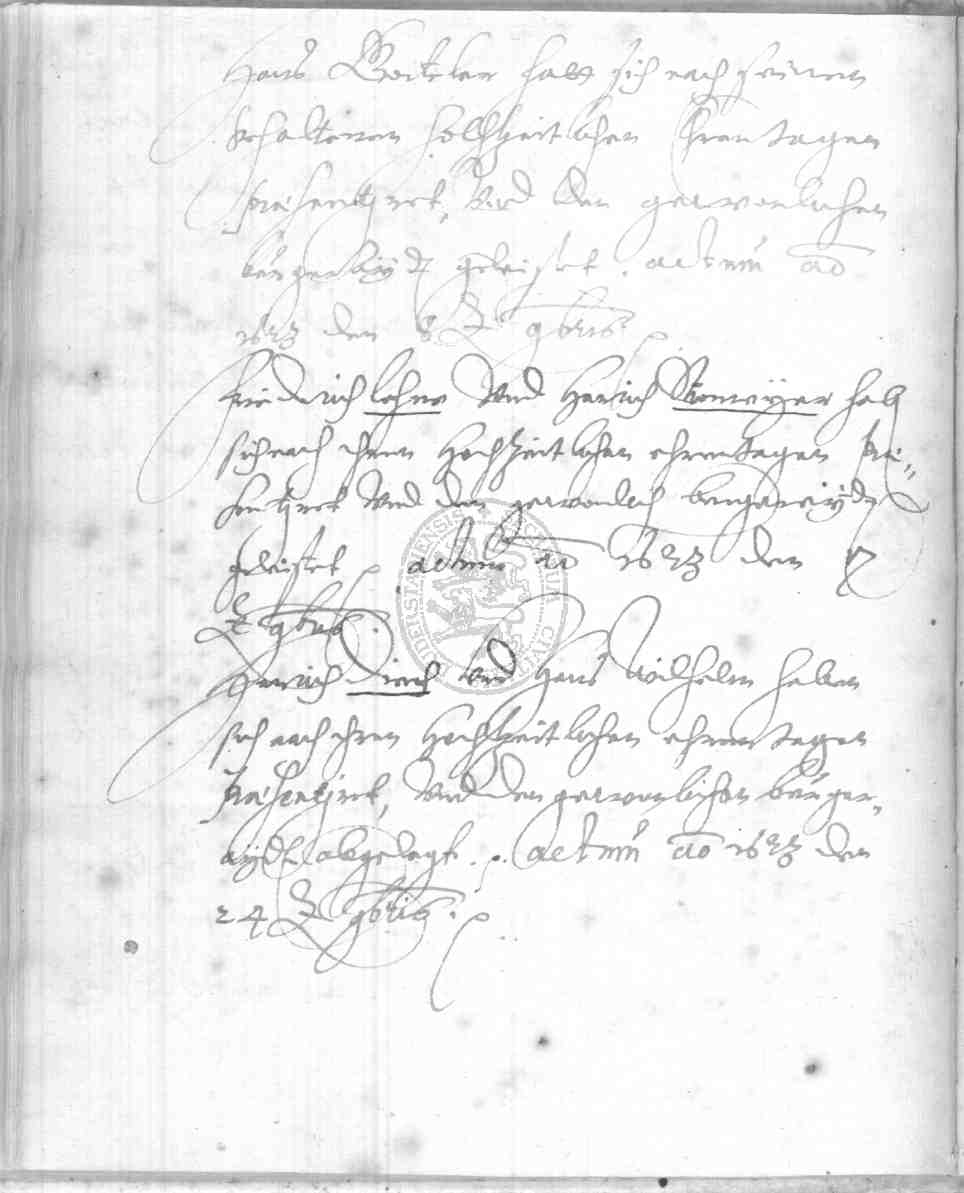 Hans Börteler hatt sich nach seinen
gehaltenen hochzeitlichen Ehrentagen
præsentiret, Und den gewonlichen
bürgerlayd geleistet. actum ao
1623 den 8 t 9bris
Friederich Lohne Und Henrich Stemeyer hatt
sich nach ihren hochzeitlichen ehrentagen præ-
sentiret Und den gewonlich bürgereiyd
geleistet. actum ao 1623 den
t 9bris
Henrich Dirich Und Hans Wilhelm haben
sich nach ihren hochzeitlichen ehrentagen
præsentiret, Und den gewonlichen bürger-
ayd abgelegt. actum ao 1623 den
24 t 9bris.
CIVI